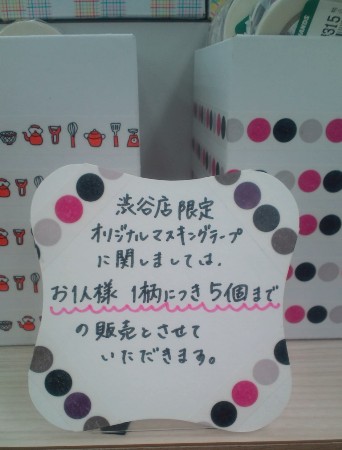 ¥315
渋谷店限定
オリジナルマスキングテープ
に関しましては、
お1人様 1柄につき 5個まで
の販売とさせて
いただきます。